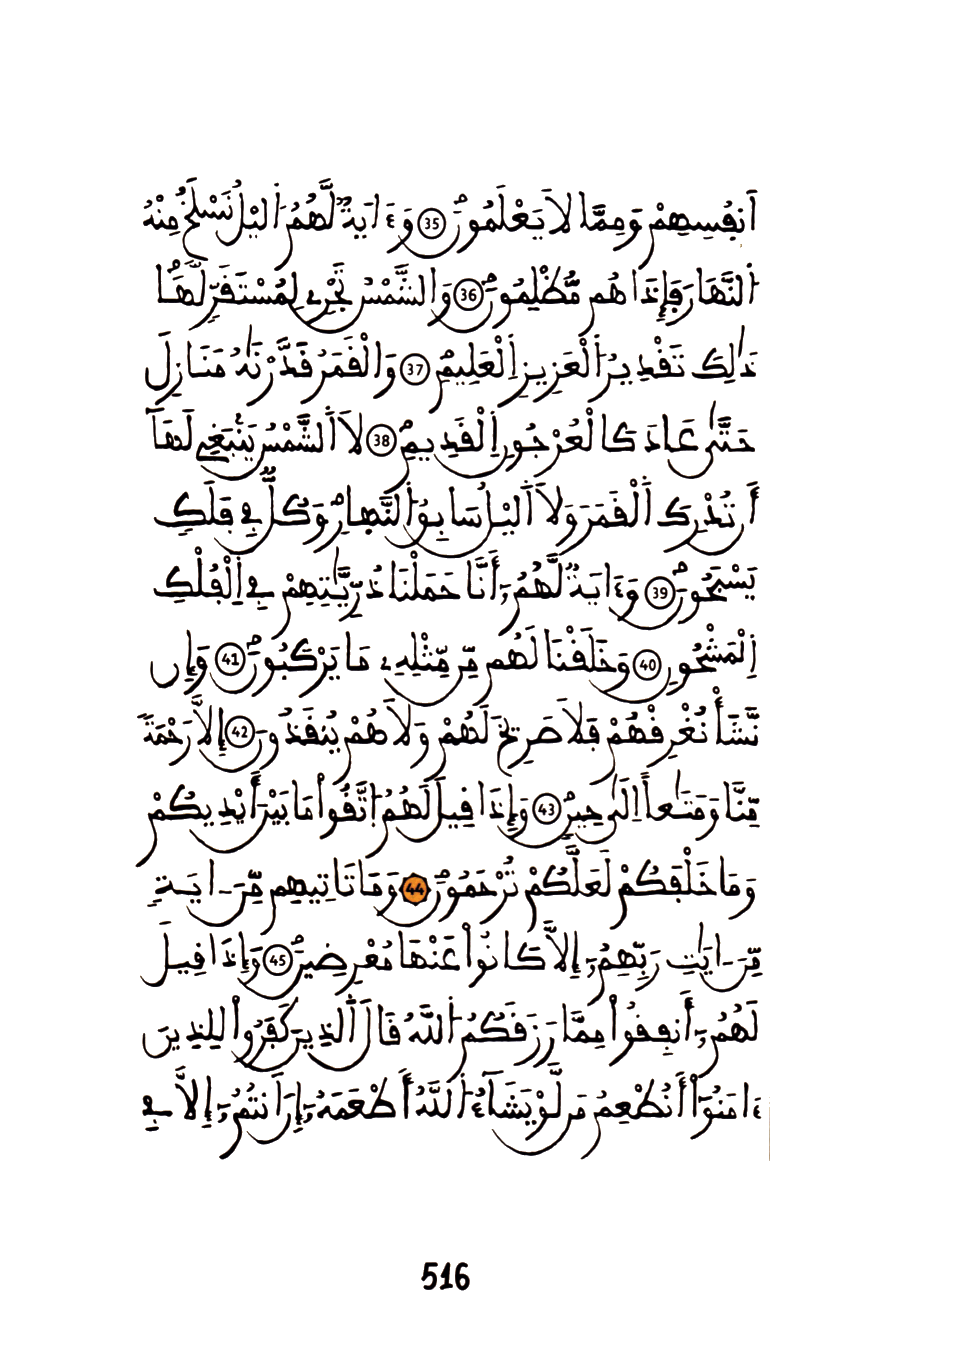 أَنفُسِهِمْ وَمِمَّا لَا يَعْلَمُونَ 35 وَءَايَةٌ لَّهُمُ اَ۬ليْلُ نَسْلَخُ مِنْهُ
اُ۬لنَّهَارَ فَإِذَا هُم مُّظْلِمُونَ 36 وَالشَّمْسُ تَجْرِي لِمُسْتَقَرٍّ لَّهَا
ذَٰلِكَ تَقْدِيرُ اُ۬لْعَزِيزِ اِ۬لْعَلِيمِ 37 وَالْقَمَرُ قَدَّرْنَٰهُ مَنَازِلَ
حَتَّىٰ عَادَ كَالْعُرْجُونِ اِ۬لْقَدِيمِ 38 لَا اَ۬لشَّمْسُ يَنۢبَغِي لَهَآ
أَن تُدْرِكَ اَ۬لْقَمَرَ وَلَا اَ۬ليْلُ سَابِقُ اُ۬لنَّهِارِ وَكُلٌّ فِي فَلَكٍ
يَسْبَحُونَ 39 وَءَايَةٌ لَّهُمُۥٓ أَنَّا حَمَلْنَا ذُرِّيَّٰتِهِمْ فِي اِ۬لْفُلْكِ
اِ۬لْمَشْحُونِ 40 وَخَلَقْنَا لَهُم مِّن مِّثْلِهِۦ مَا يَرْكَبُونَ 41 وَإِن
نَّشَأْ نُغْرِقْهُمْ فَلَا صَرِيخَ لَهُمْ وَلَا هُمْ يُنقَذُونَ 42 إِلَّا رَحْمَةً
مِّنَّا وَمَتَٰعاً اِلَىٰ حِينٍ 43 وَإِذَا قِيلَ لَهُمُ اُ۪تَّقُواْ مَا بَيْنَ أَيْدِيكُمْ
وَمَا خَلْفَكُمْ لَعَلَّكُمْ تُرْحَمُونَ 44 وَمَا تَاتِيهِم مِّنَ ـ ايَةٍ
مِّنَ ـ ايَٰتِ رَبِّهِمُۥٓ إِلَّا كَانُواْ عَنْهَا مُعْرِضِينَ 45 وَإِذَا قِيلَ
لَهُمُۥٓ أَنفِقُواْ مِمَّا رَزَقَكُمُ اُ۬للَّهُ قَالَ اَ۬لذِينَ كَفَرُواْ لِلذِينَ
ءَامَنُوٓاْ أَنُطْعِمُ مَن لَّوْ يَشَآءُ اُ۬للَّهُ أَطْعَمَهُۥٓ إِنَ اَنتُمُۥٓ إِلَّا فِي
516